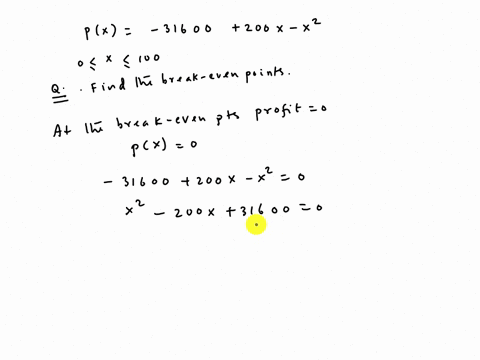 p(x) = -31600 + 200x - x²
0 ≤ x ≤ 100
Q. Find the break-even points.
At the break-even pts profit = 0
p(x) = 0
-31600 + 200x - x² = 0
x² - 200x + 31600 = 0